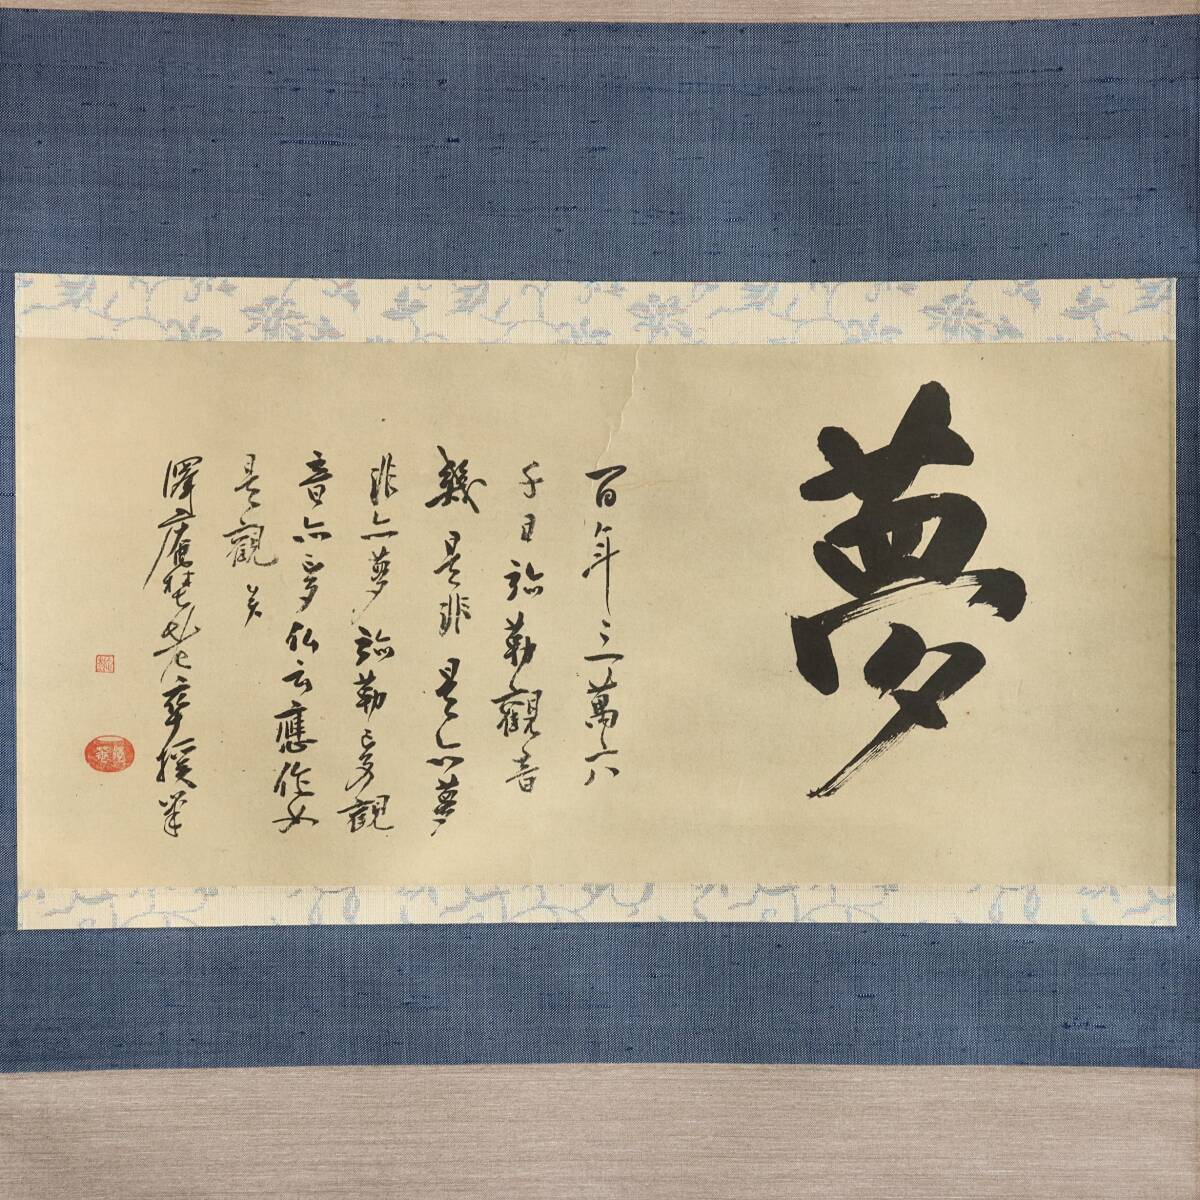 夢
百年三萬六
千日弥勒観音
幾是非是亦夢
非亦夢弥勒夢観
音亦夢仏云應作如
是観矣
澤庵埜老卒援筆